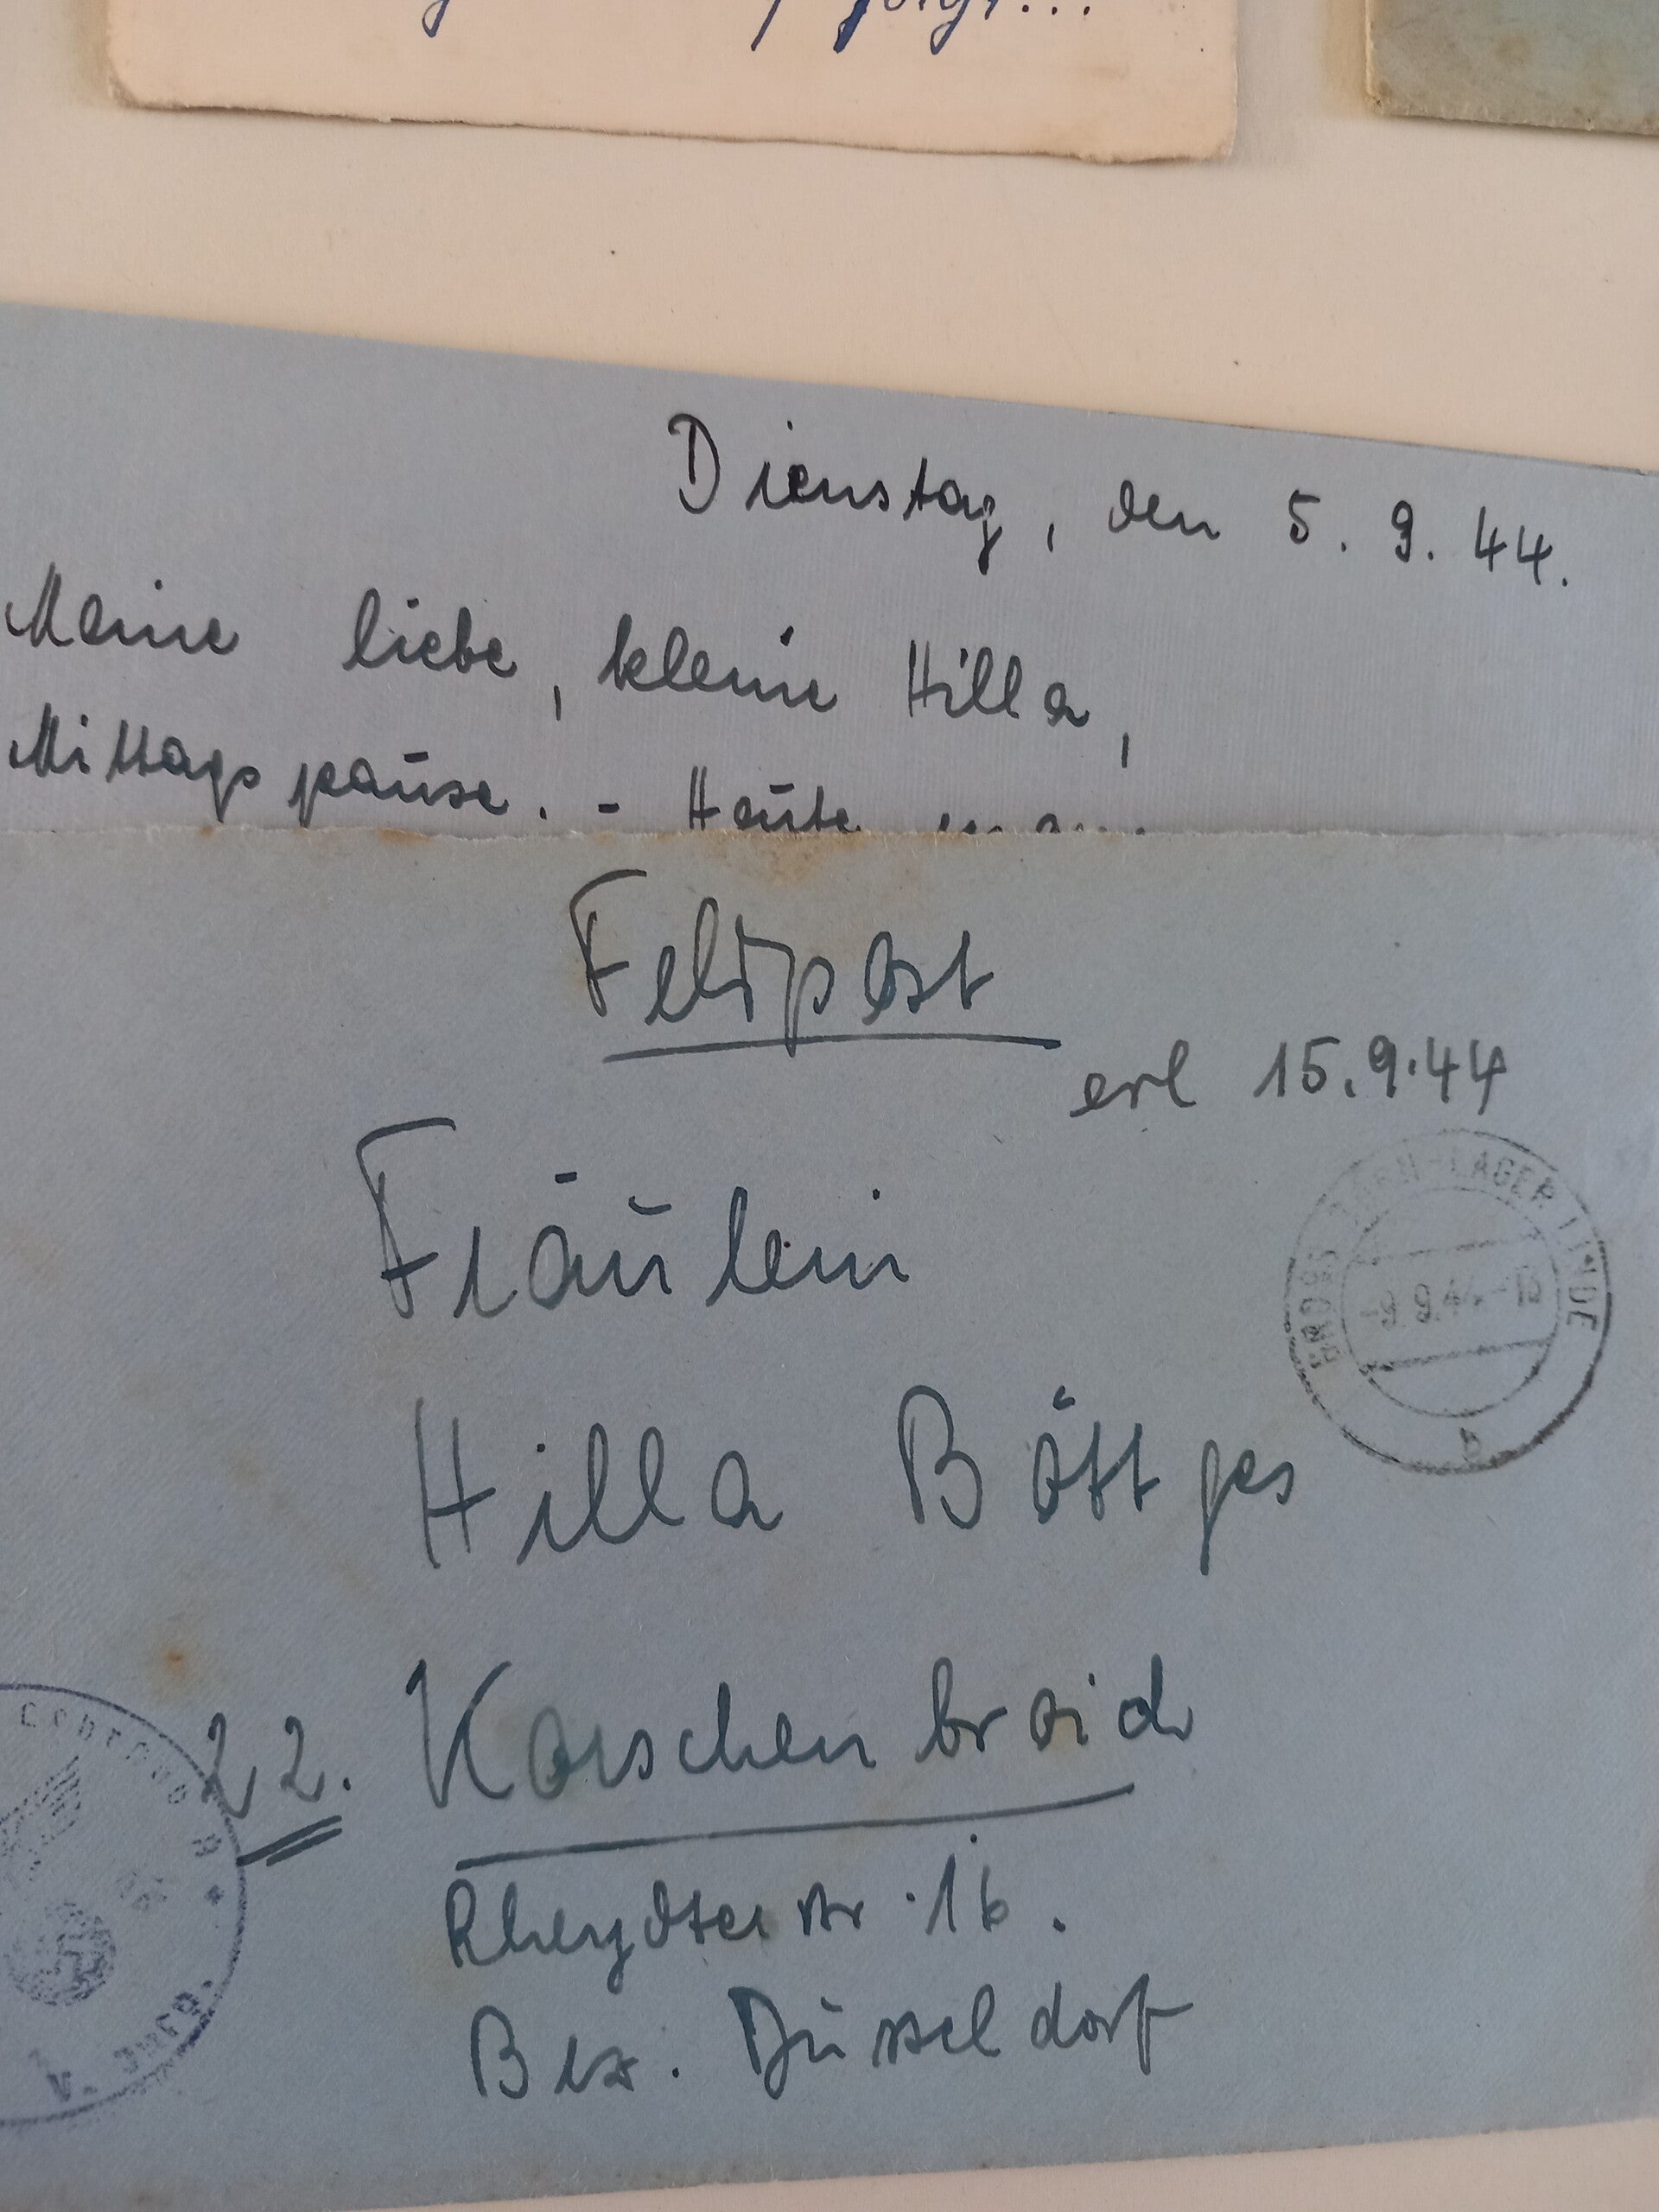 Dienstag, den 5. 9. 44.
Meine liebe, kleine Hilla,
Mittagspause. - Heute
Feldpost
erl 15.9.44
GROSS BORN-LAGER LINDE
-9.9.44.-18
b
Fräulein
Hilla Böttges
22. Korschenbroich
Rheydterstr. 16.
Bez. Düsseldorf